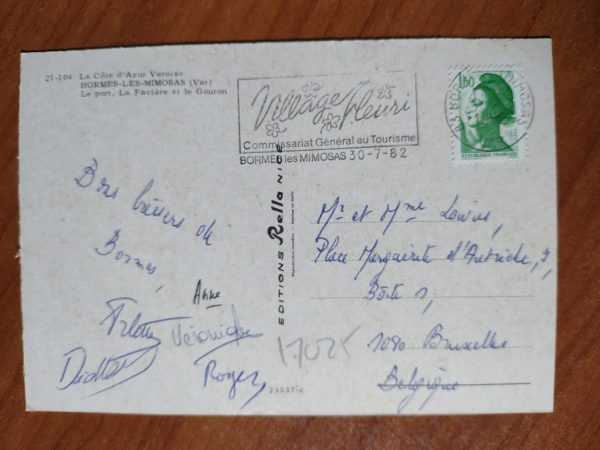 21-104 La Côte d'Azur Varoise
BORMES-LES-MIMOSAS (Var)
Le port, La Favière et le Gouron
Village Fleuri
Commissariat Général au Tourisme
BORMES les MIMOSAS 30-7-82
1,60
REPUBLIQUE FRANÇAISE
Bons baisers de
Bormes,
Anne
Véronique
Roger
EDITIONS Rella NICE
Mr et Mme
Place Marguerite d'Autriche, 3,
Boîte 1,
1080 Bruxelles
Belgique
17025
23537-c